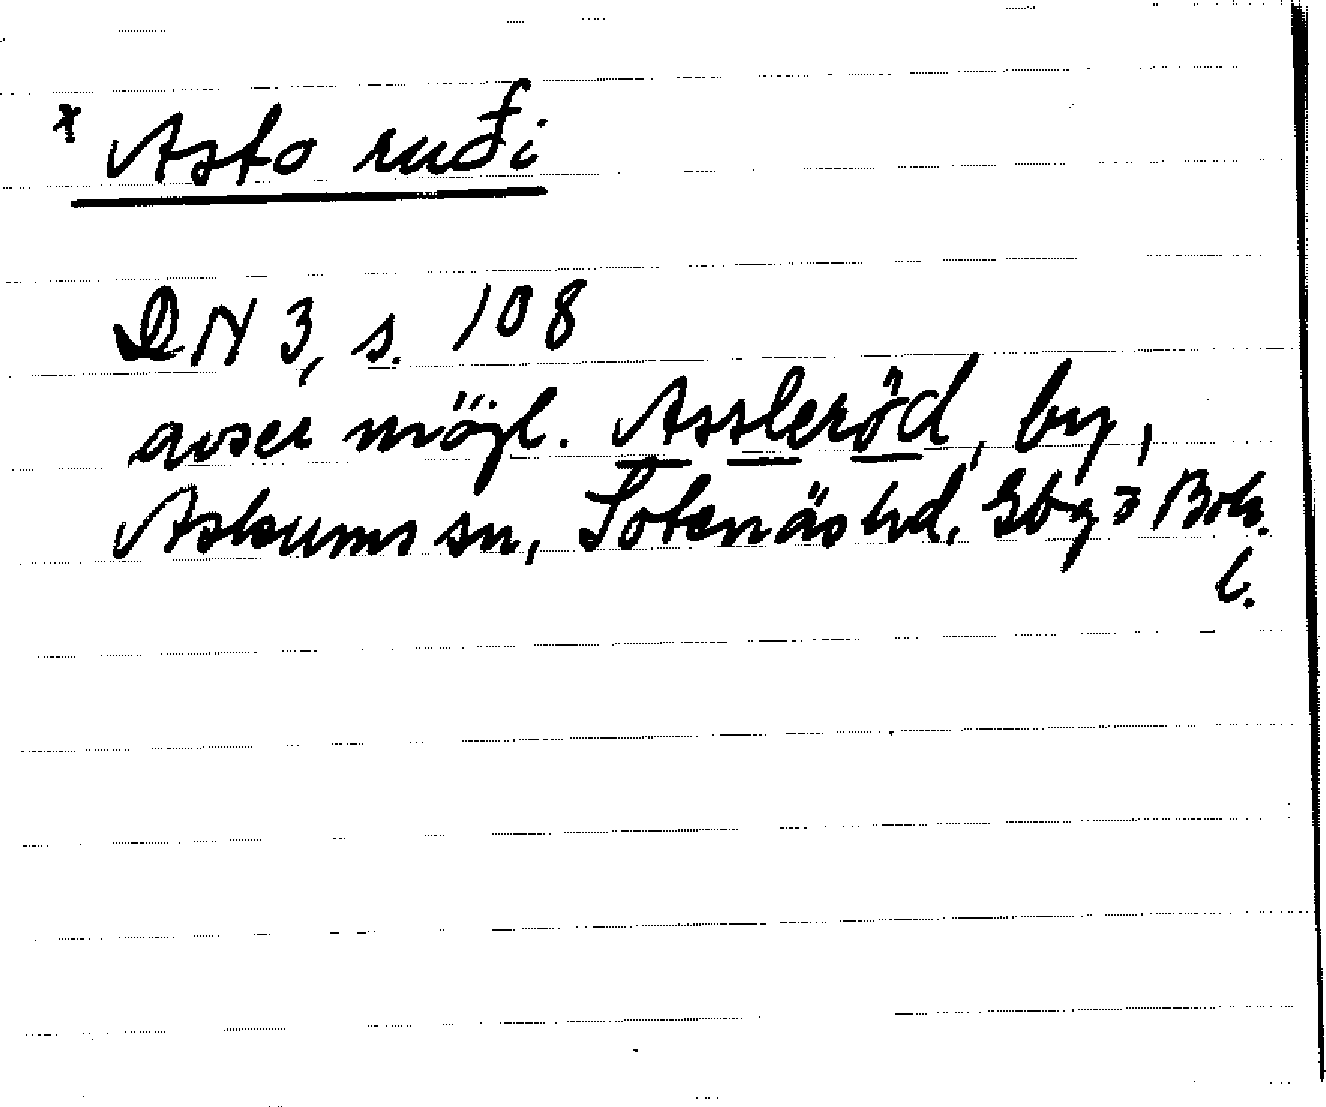 x Asto ruđi
DN 3, s. 108
avser möjl. Assleröd, by,
Askums sn, Sotenäs hd, Gbg o Boh.
l.